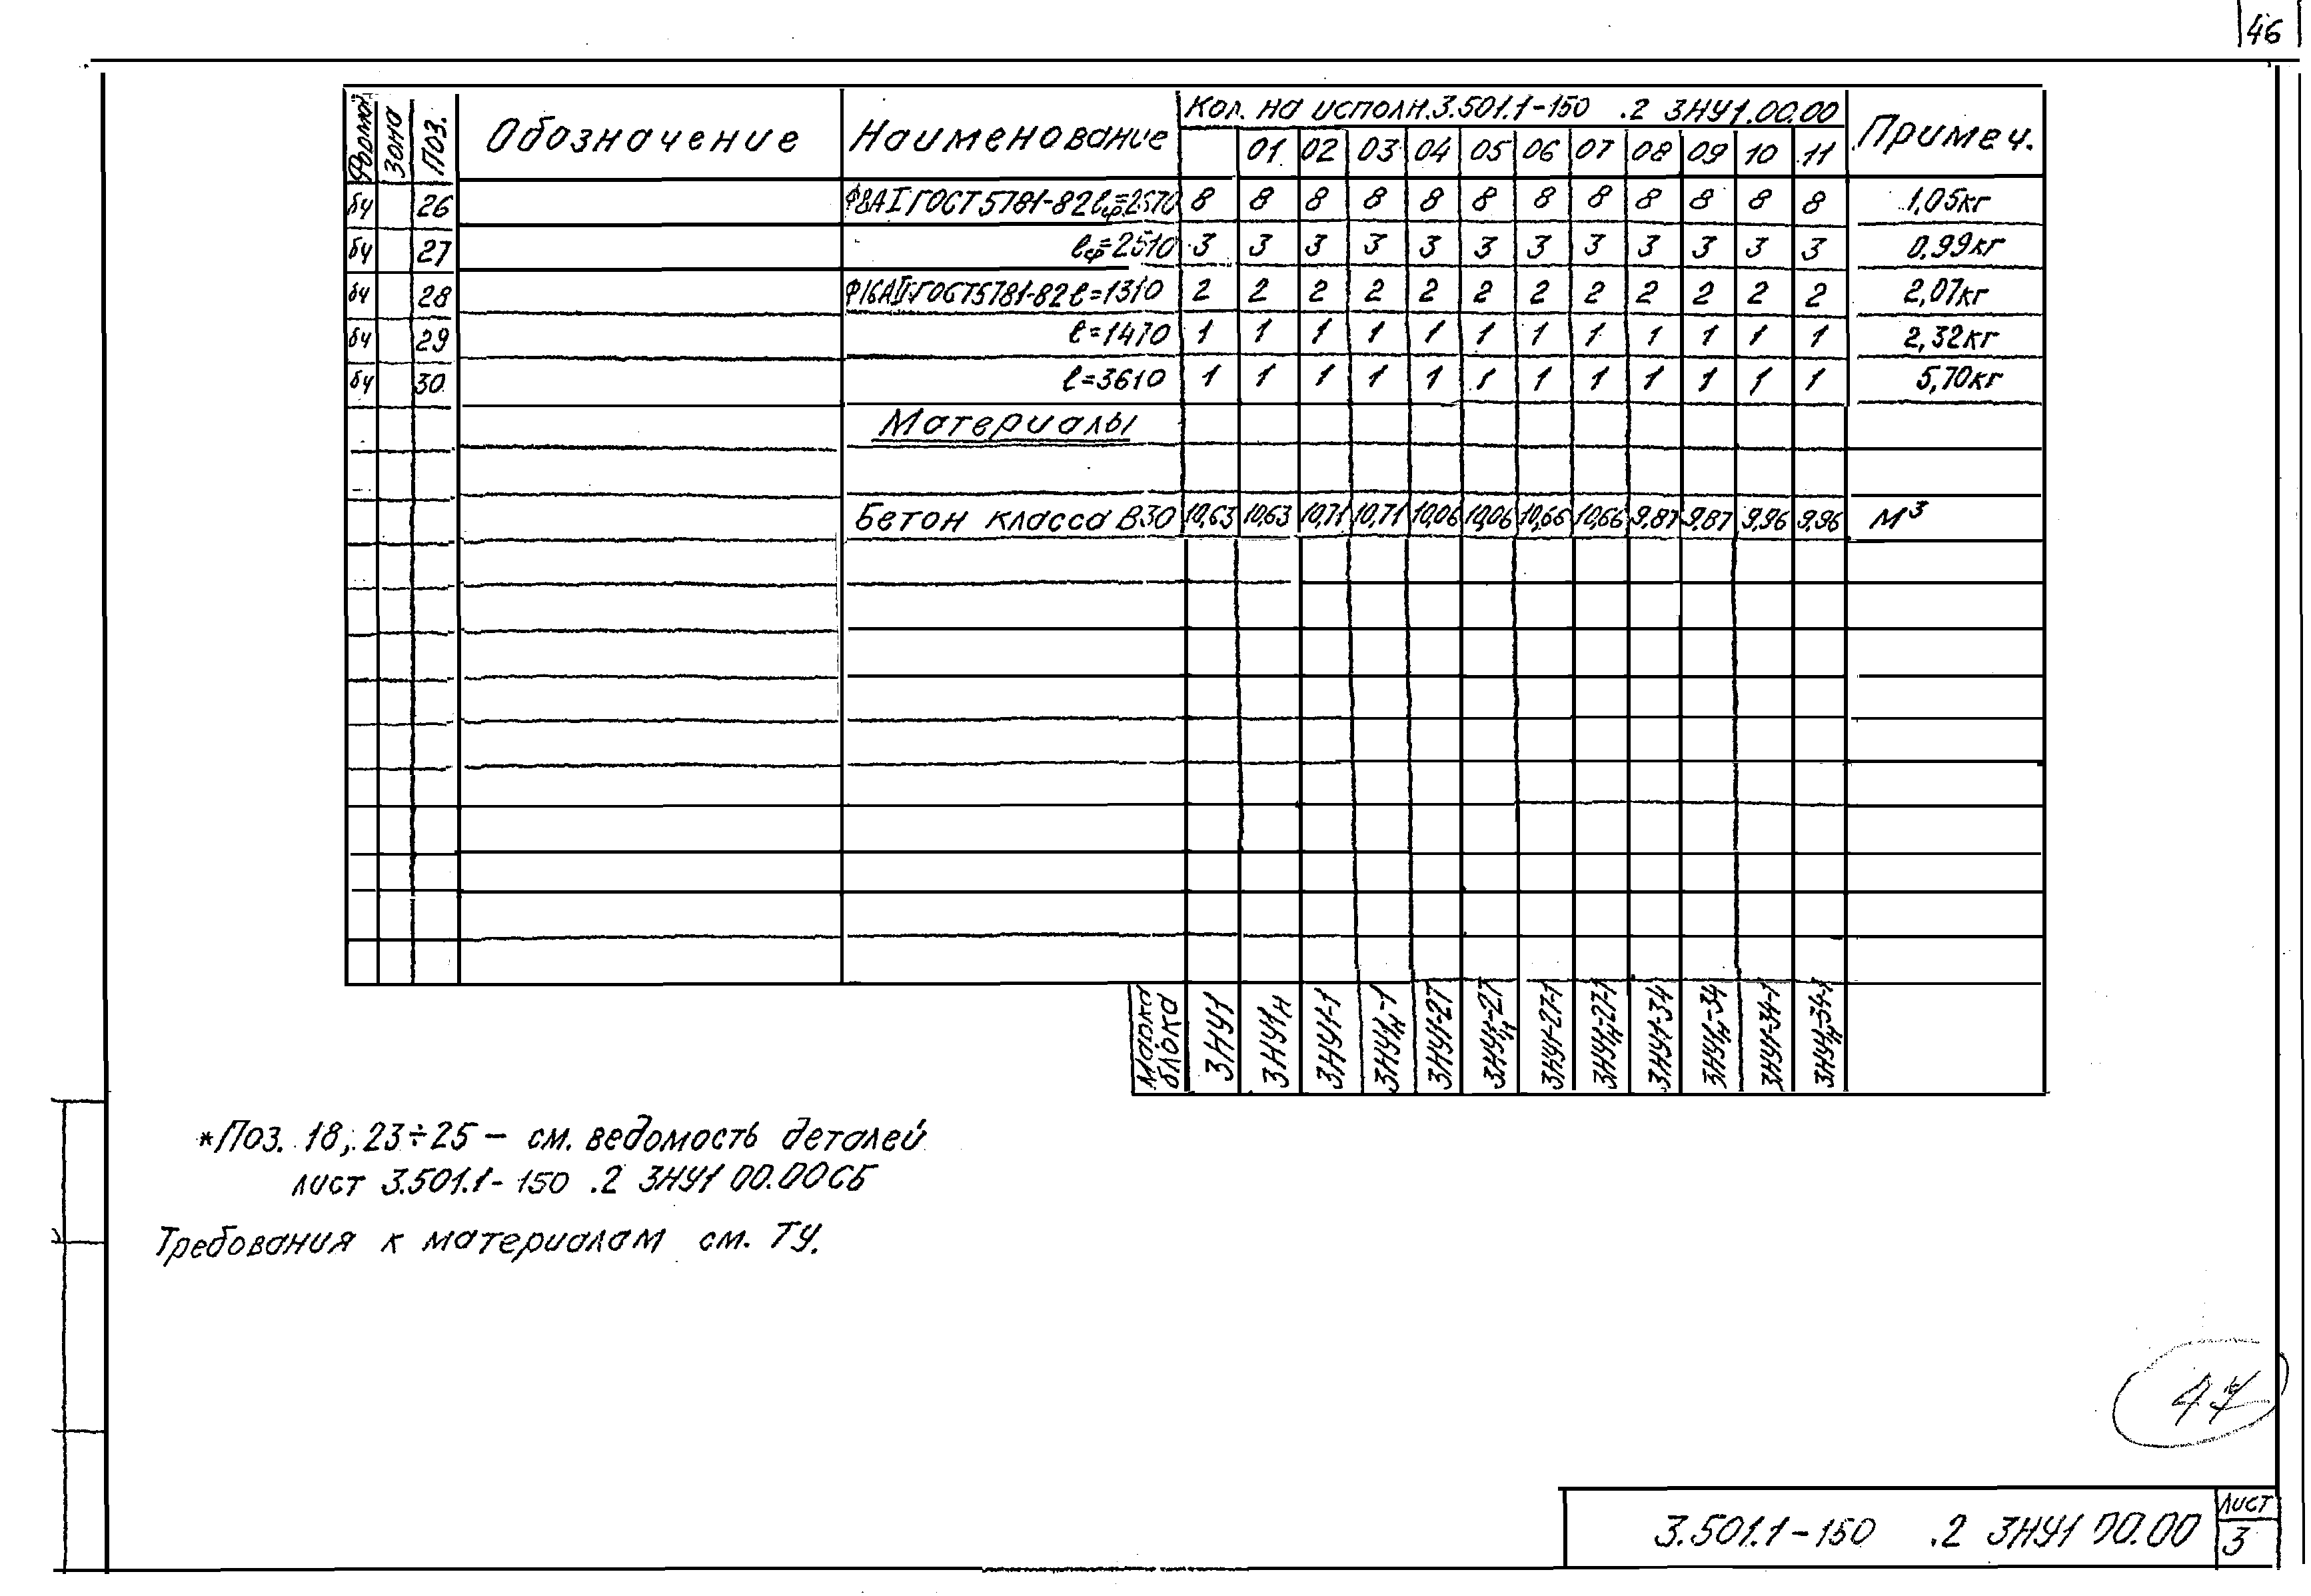 46
Формат Зона Поз. Обозначение Наименование Кол. на исполн. 3.501.1-150 .2 3НУ1.00.00 Примеч.
01 02 03 04 05 06 07 08 09 10 11
бч 26 Ф8АI ГОСТ 5781-82 lср=2670 8 8 8 8 8 8 8 8 8 8 8 8 1,05кг
бч 27 lср=2510 3 3 3 3 3 3 3 3 3 3 3 3 0,99кг
бч 28 Ф16АII ГОСТ 5781-82 l=1310 2 2 2 2 2 2 2 2 2 2 2 2 2,07кг
бч 29 l=1470 1 1 1 1 1 1 1 1 1 1 1 1 2,32кг
бч 30 l=3610 1 1 1 1 1 1 1 1 1 1 1 1 5,70кг
Материалы
Бетон класса В30 10,63 10,63 10,71 10,71 10,06 10,06 10,66 10,66 9,87 9,87 9,96 9,96 м³
Марка блока 3НУ1 3НУ1н 3НУ1-1 3НУ1н-1 3НУ1-27 3НУ1н-27 3НУ1-27-1 3НУ1н-27-1 3НУ1-34 3НУ1н-34 3НУ1-34-1 3НУ1н-34-1
*Поз. 18, 23÷25 — см. ведомость деталей
лист 3.501.1-150 .2 3НУ1 00.00СБ
Требования к материалам см. ТУ.
47
3.501.1-150 .2 3НУ1 00.00
Лист
3